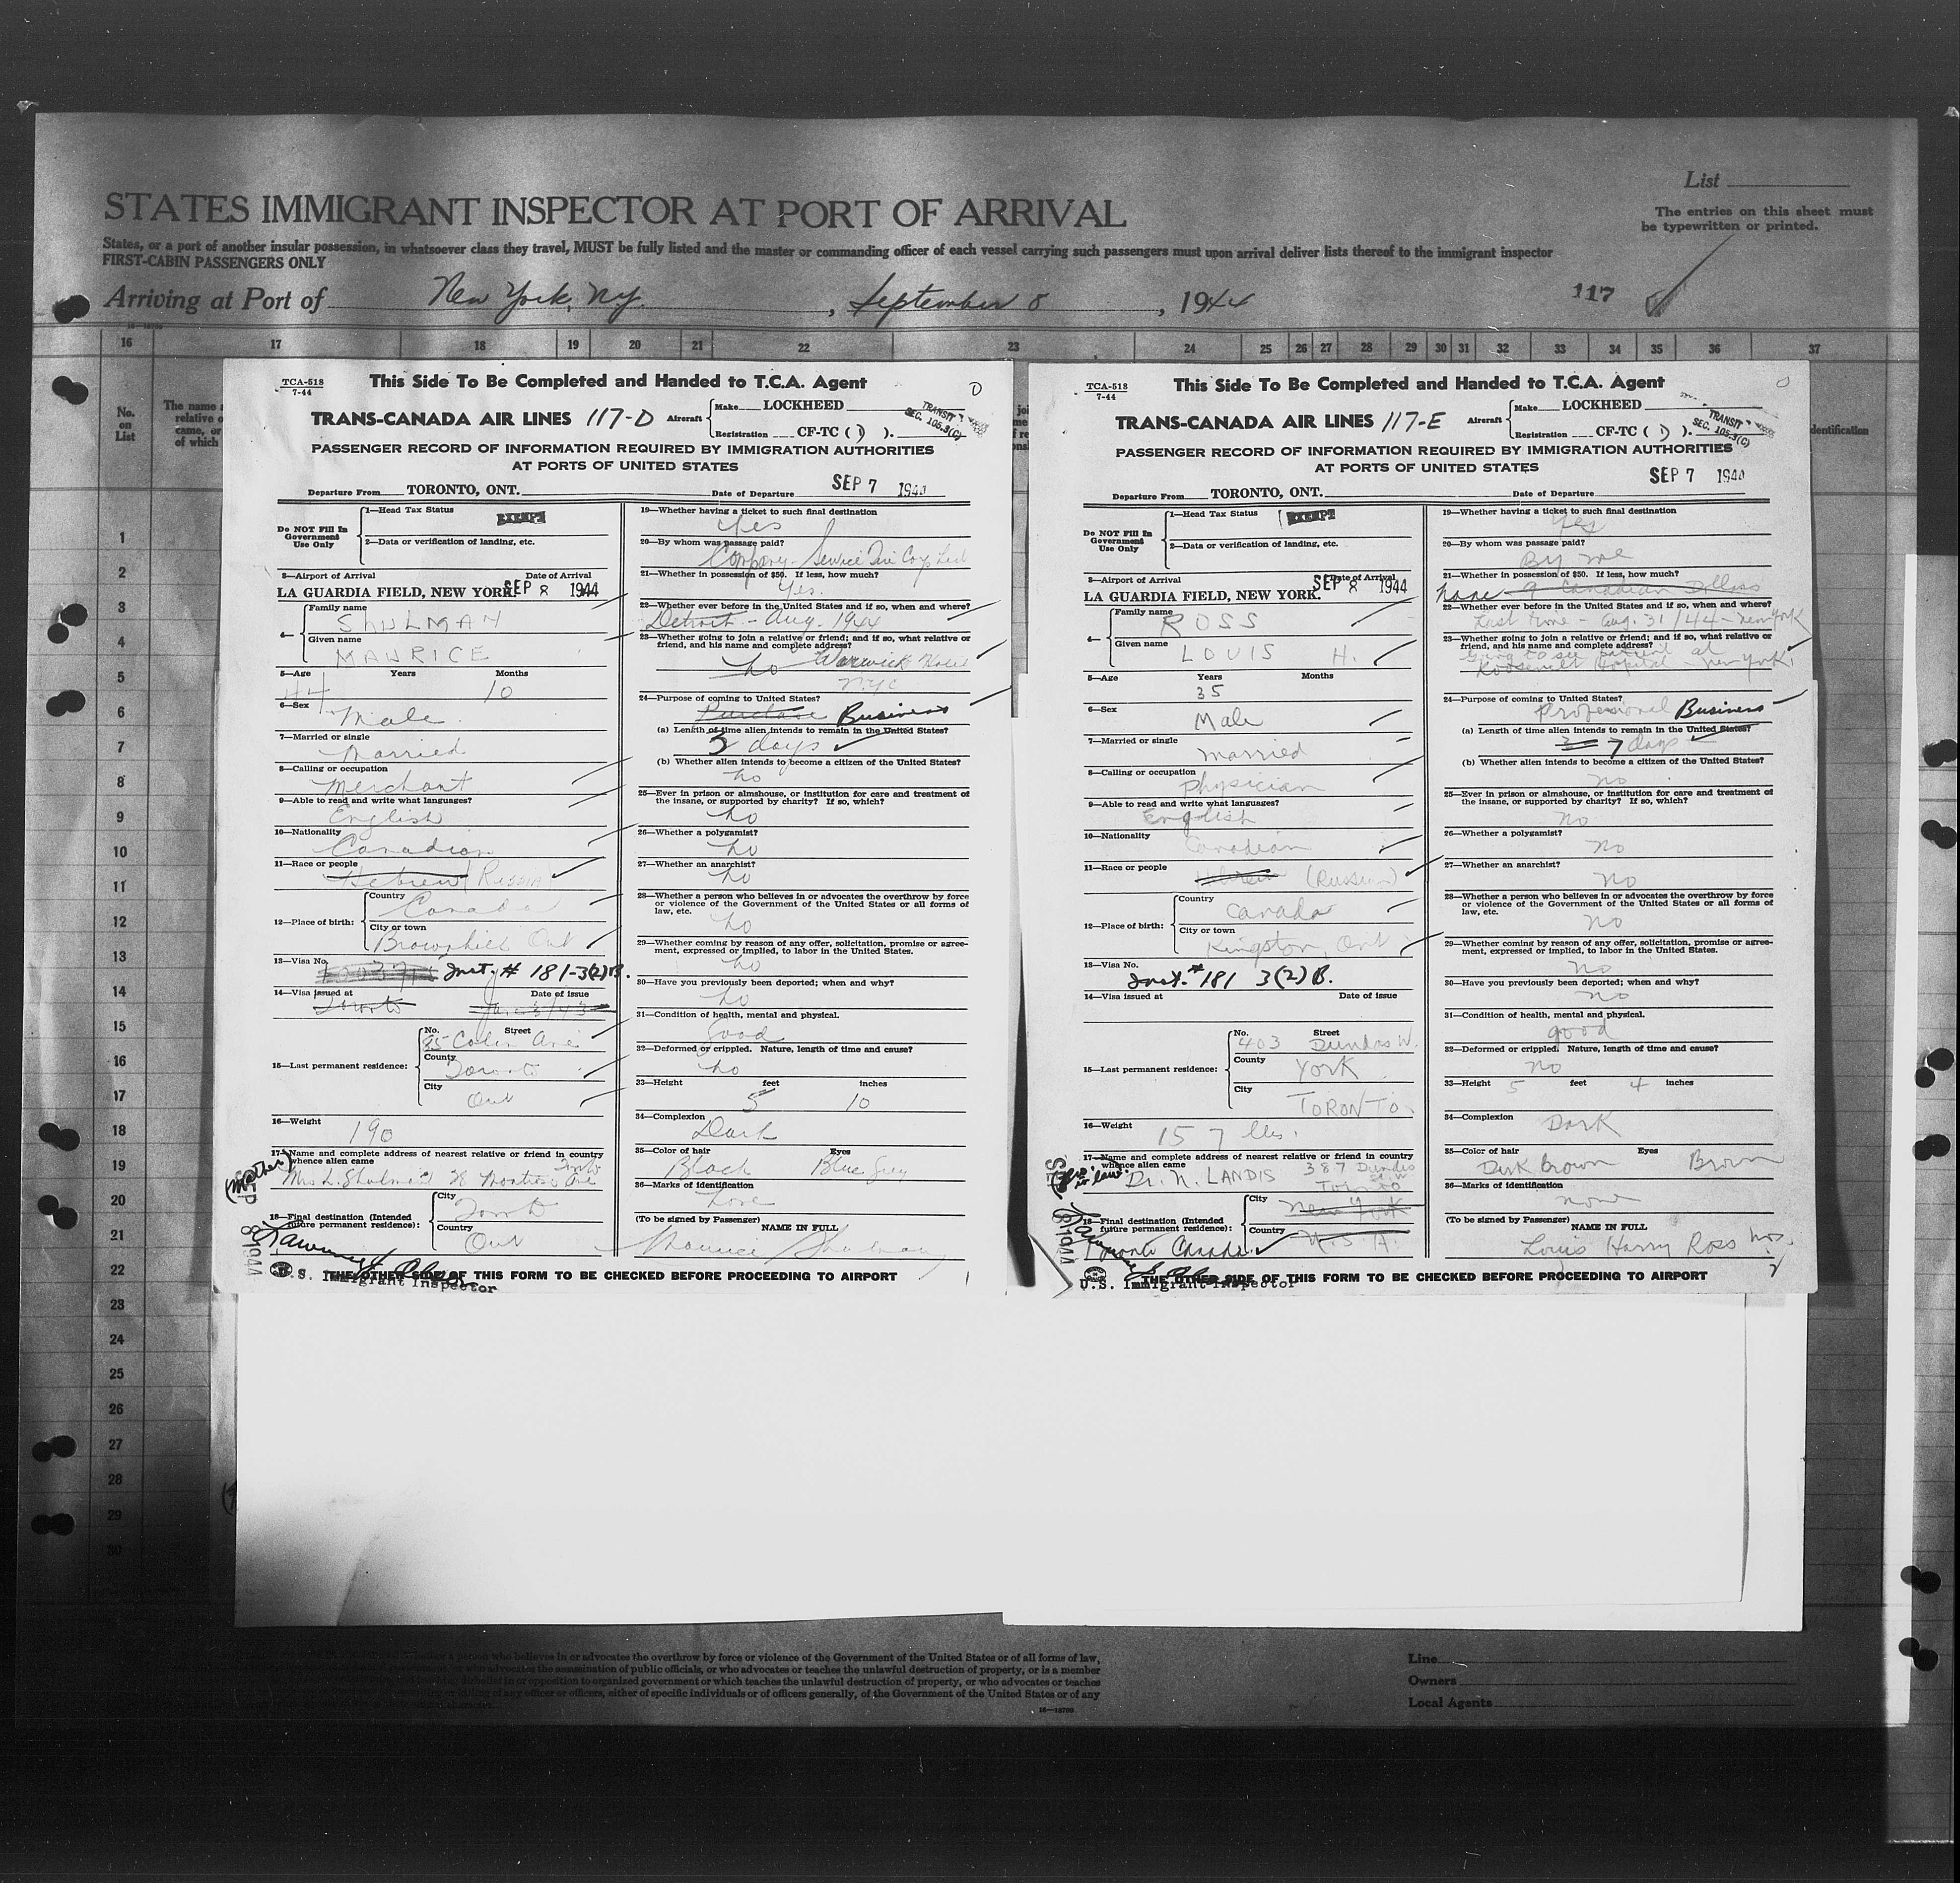 List
The entries on this sheet must
be typewritten or printed.
STATES IMMIGRANT INSPECTOR AT PORT OF ARRIVAL
States, or a port of another insular possession, in whatsoever class they travel, MUST be fully listed and the master or commanding officer of each vessel carrying such passengers must upon arrival deliver lists thereof to the immigrant inspector
FIRST-CABIN PASSENGERS ONLY
Arriving at Port of New York, N.Y. , September 8 , 1944
117
16 17 18 19 20 21 22 23 24 25 26 27 28 29 30 31 32 33 34 35 36 37
No.
on
List
The name
relative o
came, or
of which
dentification
1
2
3
4
5
6
7
8
9
10
11
12
13
14
15
16
17
18
19
20
21
22
23
24
25
26
27
28
29
30
TCA-518
7-44
This Side To Be Completed and Handed to T.C.A. Agent
TRANS-CANADA AIR LINES 117-D
Aircraft
Make LOCKHEED
Registration CF-TC ( ).
TRANSIT
SEC. 105.3(C)
PASSENGER RECORD OF INFORMATION REQUIRED BY IMMIGRATION AUTHORITIES
AT PORTS OF UNITED STATES
Departure From TORONTO, ONT.
Date of Departure SEP 7 194
Do NOT Fill In
Government
Use Only
1—Head Tax Status EXEMPT
2—Data or verification of landing, etc.
3—Airport of Arrival Date of Arrival
LA GUARDIA FIELD, NEW YORK. SEP 8 1944
4—
Family name
SHULMAN
Given name
MAURICE
5—Age Years Months
44 10
6—Sex
Male
7—Married or single
Married
8—Calling or occupation
Merchant
9—Able to read and write what languages?
English
10—Nationality
Canadian
11—Race or people
Hebrew Russia
12—Place of birth:
Country
Canada
City or town
Ont
13—Visa No.
Inst. # 181-3(2)B.
14—Visa issued at Date of issue
Toronto
15—Last permanent residence:
No. Street
85 Colin Ave
County
Toronto
City
Ont
16—Weight
190
17—Name and complete address of nearest relative or friend in country
whence alien came
(Mother)
Mrs L. Shulman
18—Final destination (Intended
future permanent residence):
City
Toronto
Country
Ont
SEP 8 1944
U.S. Immigrant Inspector
THE OTHER SIDE OF THIS FORM TO BE CHECKED BEFORE PROCEEDING TO AIRPORT
19—Whether having a ticket to such final destination
Yes
20—By whom was passage paid?
Company - Service
21—Whether in possession of $50. If less, how much?
Yes.
22—Whether ever before in the United States and if so, when and where?
Detroit - Aug. 1944
23—Whether going to join a relative or friend; and if so, what relative or
friend, and his name and complete address?
no Warwick Hotel
NYC
24—Purpose of coming to United States?
Purchase Business
(a) Length of time alien intends to remain in the United States?
3 days
(b) Whether alien intends to become a citizen of the United States?
no
25—Ever in prison or almshouse, or institution for care and treatment of
the insane, or supported by charity? If so, which?
no
26—Whether a polygamist?
no
27—Whether an anarchist?
no
28—Whether a person who believes in or advocates the overthrow by force
or violence of the Government of the United States or all forms of
law, etc.
no
29—Whether coming by reason of any offer, solicitation, promise or agree-
ment, expressed or implied, to labor in the United States.
no
30—Have you previously been deported; when and why?
no
31—Condition of health, mental and physical.
Good
32—Deformed or crippled. Nature, length of time and cause?
no
33—Height feet inches
5 10
34—Complexion
Dark
35—Color of hair Eyes
Black Blue Grey
36—Marks of identification
None
(To be signed by Passenger) NAME IN FULL
Maurice Shulman
TCA-518
7-44
This Side To Be Completed and Handed to T.C.A. Agent
TRANS-CANADA AIR LINES 117-E
Aircraft
Make LOCKHEED
Registration CF-TC ( ).
TRANSIT
SEC. 105.3(C)
PASSENGER RECORD OF INFORMATION REQUIRED BY IMMIGRATION AUTHORITIES
AT PORTS OF UNITED STATES
Departure From TORONTO, ONT.
Date of Departure SEP 7 194
Do NOT Fill In
Government
Use Only
1—Head Tax Status EXEMPT
2—Data or verification of landing, etc.
3—Airport of Arrival Date of Arrival
LA GUARDIA FIELD, NEW YORK. SEP 8 1944
4—
Family name
ROSS
Given name
LOUIS H.
5—Age Years Months
35
6—Sex
Male
7—Married or single
married
8—Calling or occupation
physician
9—Able to read and write what languages?
English
10—Nationality
Canadian
11—Race or people
Hebrew (Russian)
12—Place of birth:
Country
Canada
City or town
Kingston, Ont
13—Visa No.
Inst. # 181 3(2)B.
14—Visa issued at Date of issue
15—Last permanent residence:
No. Street
403 Dundas W.
County
York
City
TORONTO
16—Weight
157 lbs.
17—Name and complete address of nearest relative or friend in country
whence alien came
Dr. N. LANDIS 387 Dundas
St. W
Toronto
18—Final destination (Intended
future permanent residence):
City
New York
Country
U.S.A.
Toronto Canada
U.S. Immigrant Inspector
THE OTHER SIDE OF THIS FORM TO BE CHECKED BEFORE PROCEEDING TO AIRPORT
19—Whether having a ticket to such final destination
Yes
20—By whom was passage paid?
By me
21—Whether in possession of $50. If less, how much?
none 9 Canadian Dollars
22—Whether ever before in the United States and if so, when and where?
Last time - Aug. 31/44 - New York
23—Whether going to join a relative or friend; and if so, what relative or
friend, and his name and complete address?
Going to see patient at
Roosevelt Hospital - New York
24—Purpose of coming to United States?
Professional Business
(a) Length of time alien intends to remain in the United States?
7 days
(b) Whether alien intends to become a citizen of the United States?
no
25—Ever in prison or almshouse, or institution for care and treatment of
the insane, or supported by charity? If so, which?
no
26—Whether a polygamist?
no
27—Whether an anarchist?
no
28—Whether a person who believes in or advocates the overthrow by force
or violence of the Government of the United States or all forms of
law, etc.
no
29—Whether coming by reason of any offer, solicitation, promise or agree-
ment, expressed or implied, to labor in the United States.
no
30—Have you previously been deported; when and why?
no
31—Condition of health, mental and physical.
good
32—Deformed or crippled. Nature, length of time and cause?
no
33—Height 5 feet 4 inches
34—Complexion
Dark
35—Color of hair Eyes
Dark Brown Brown
36—Marks of identification
none
(To be signed by Passenger) NAME IN FULL
Louis Harry Ross
whether a person who believes in or advocates the overthrow by force or violence of the Government of the United States or of all forms of law,
or who advocates the assassination of public officials, or who advocates or teaches the unlawful destruction of property, or is a member
disbelief in or opposition to organized government or which teaches the unlawful destruction of property, or who advocates or teaches
killing of any officer or officers, either of specific individuals or of officers generally, of the Government of the United States or of any
Line
Owners
Local Agents